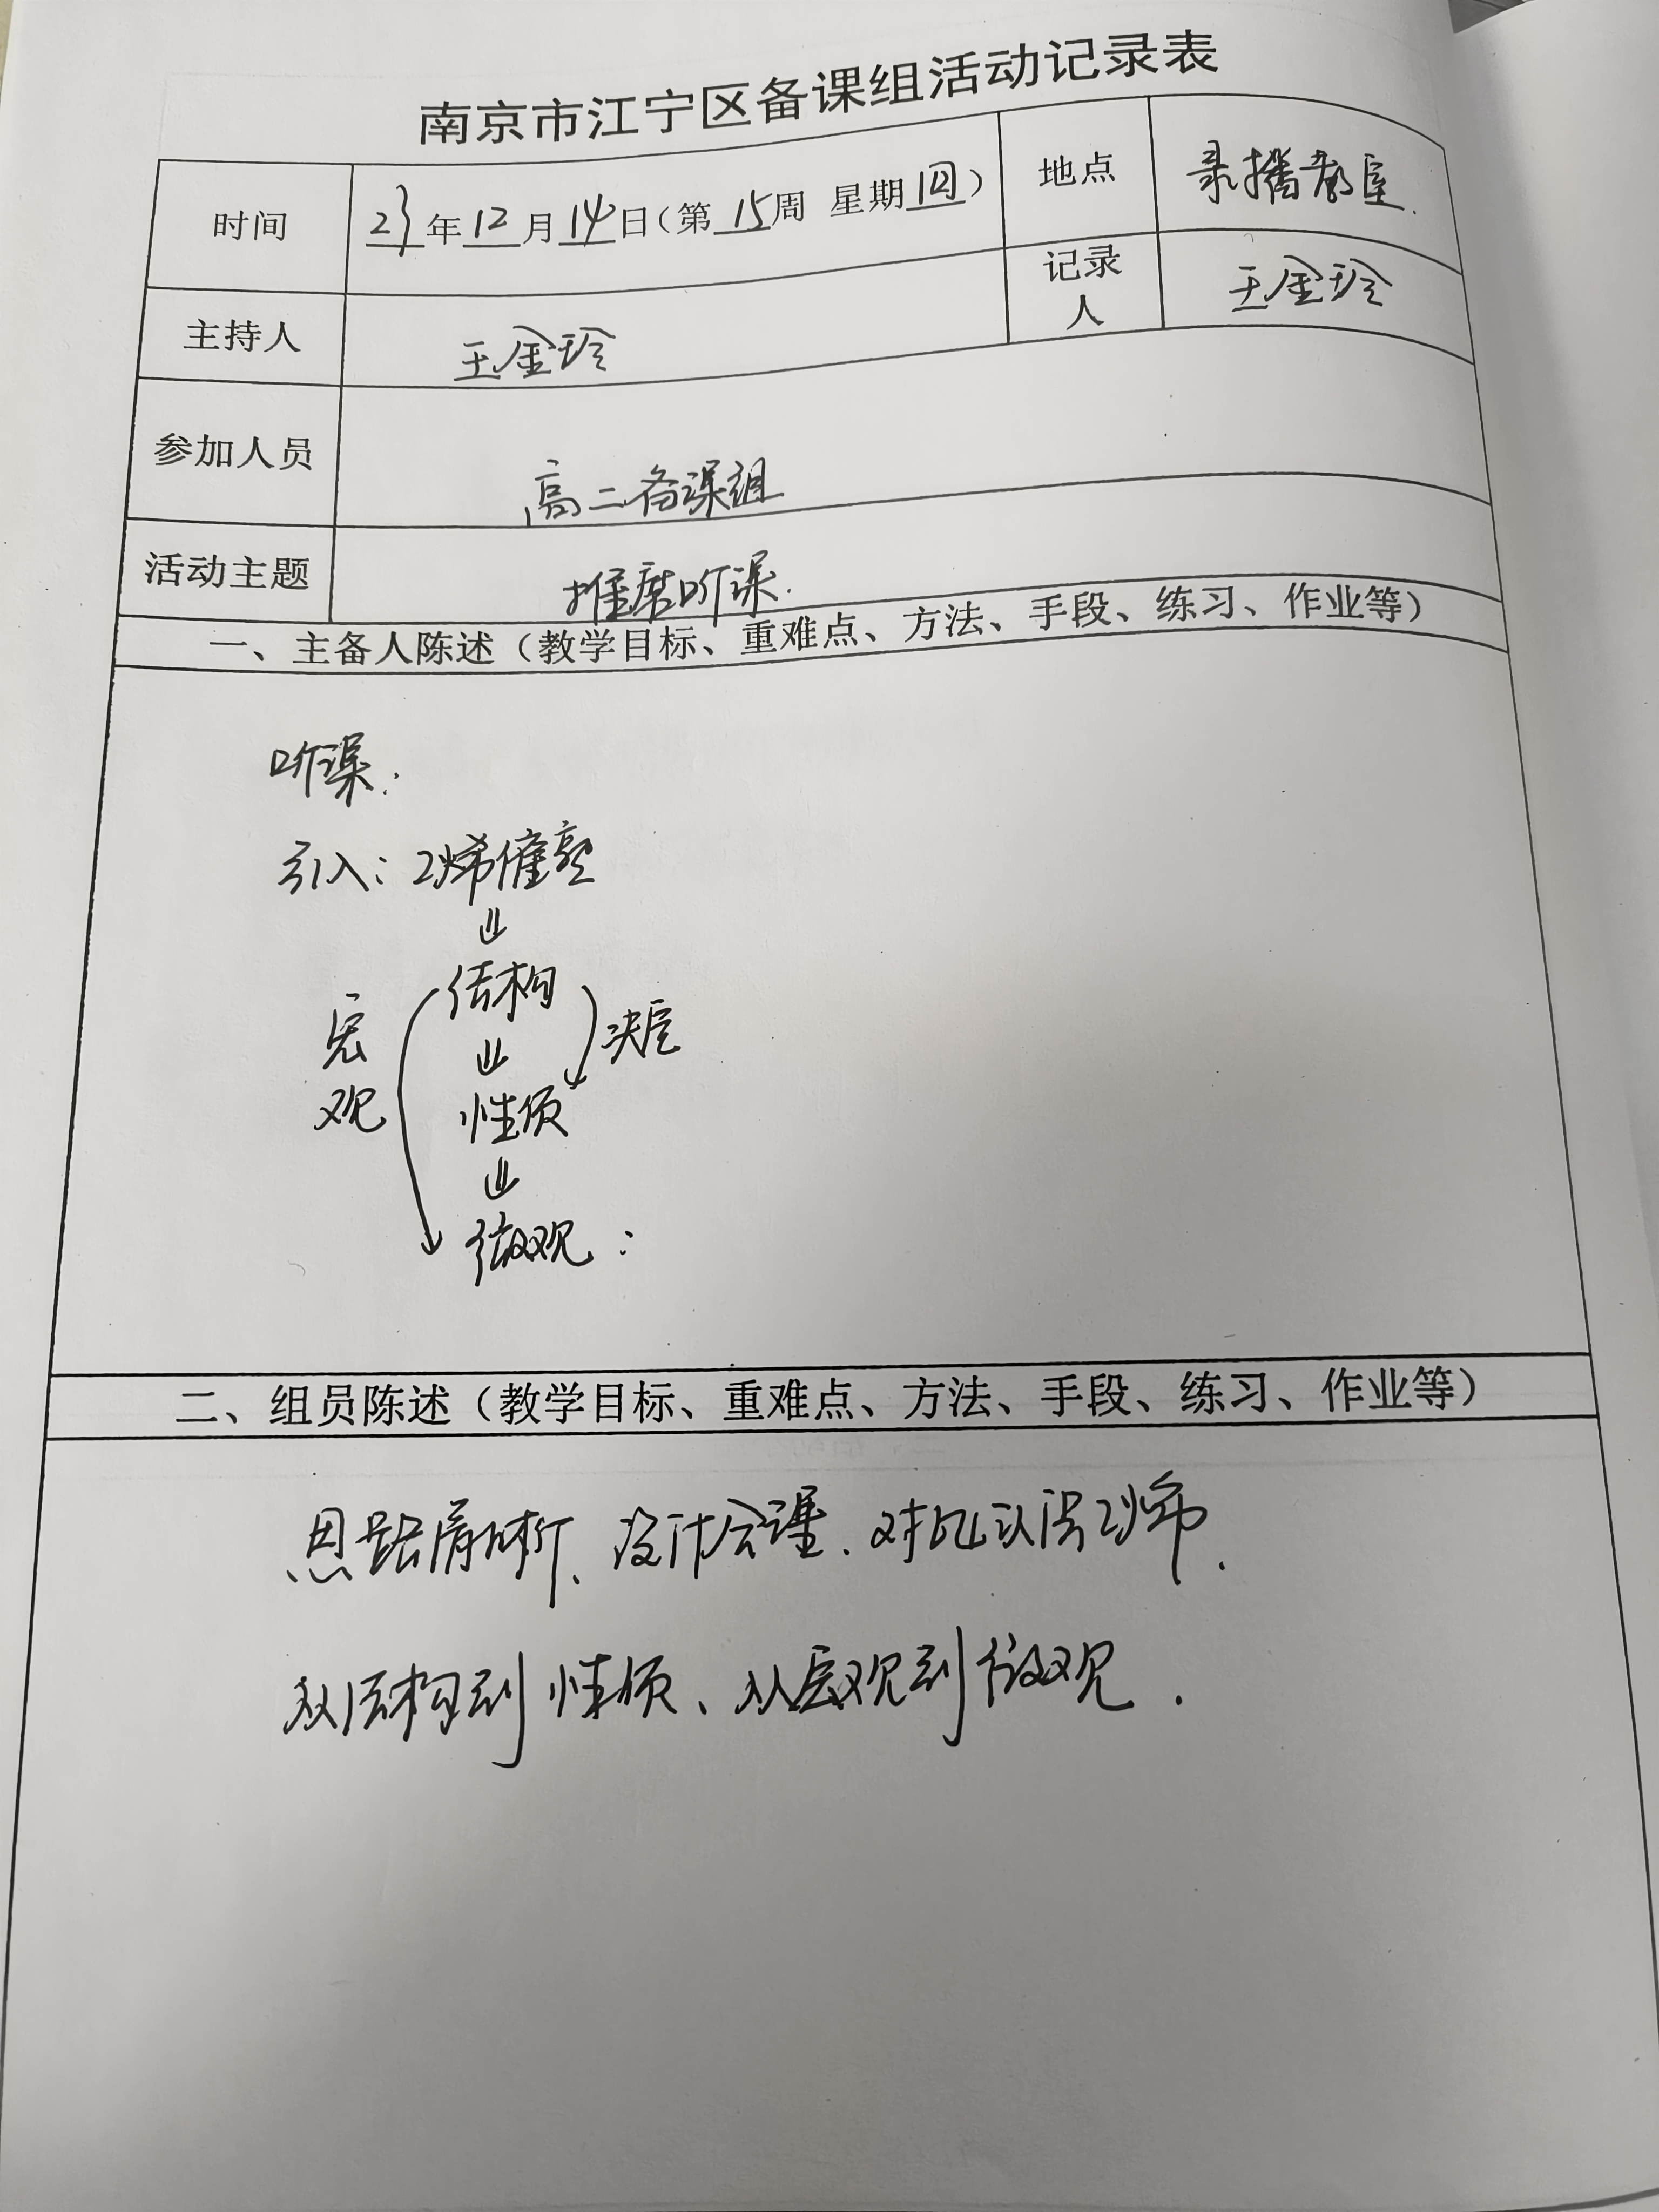 南京市江宁区备课组活动记录表
时间 23年12月14日(第15周 星期四) 地点 录播教室.
主持人 王金玲 记录人 王金玲
参加人员 高二备课组
活动主题 推磨听课.
一、主备人陈述(教学目标、重难点、方法、手段、练习、作业等)
听课.
引入:乙烯催熟
⇓
结构
宏观 决定
⇓
性质
⇓
微观:
二、组员陈述(教学目标、重难点、方法、手段、练习、作业等)
思路清晰、设计合理.对比认识乙烯.
从结构到性质、从宏观到微观.